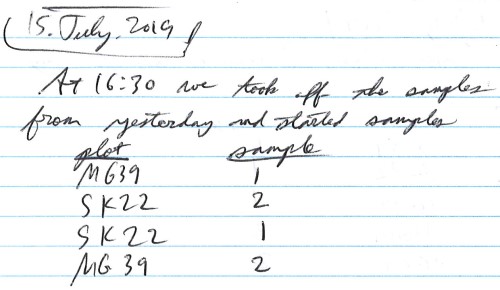 15. July. 2019
At 16:30 we took off the samples
from yesterday and started samples
plot sample
MG39 1
SK22 2
SK22 1
MG39 2